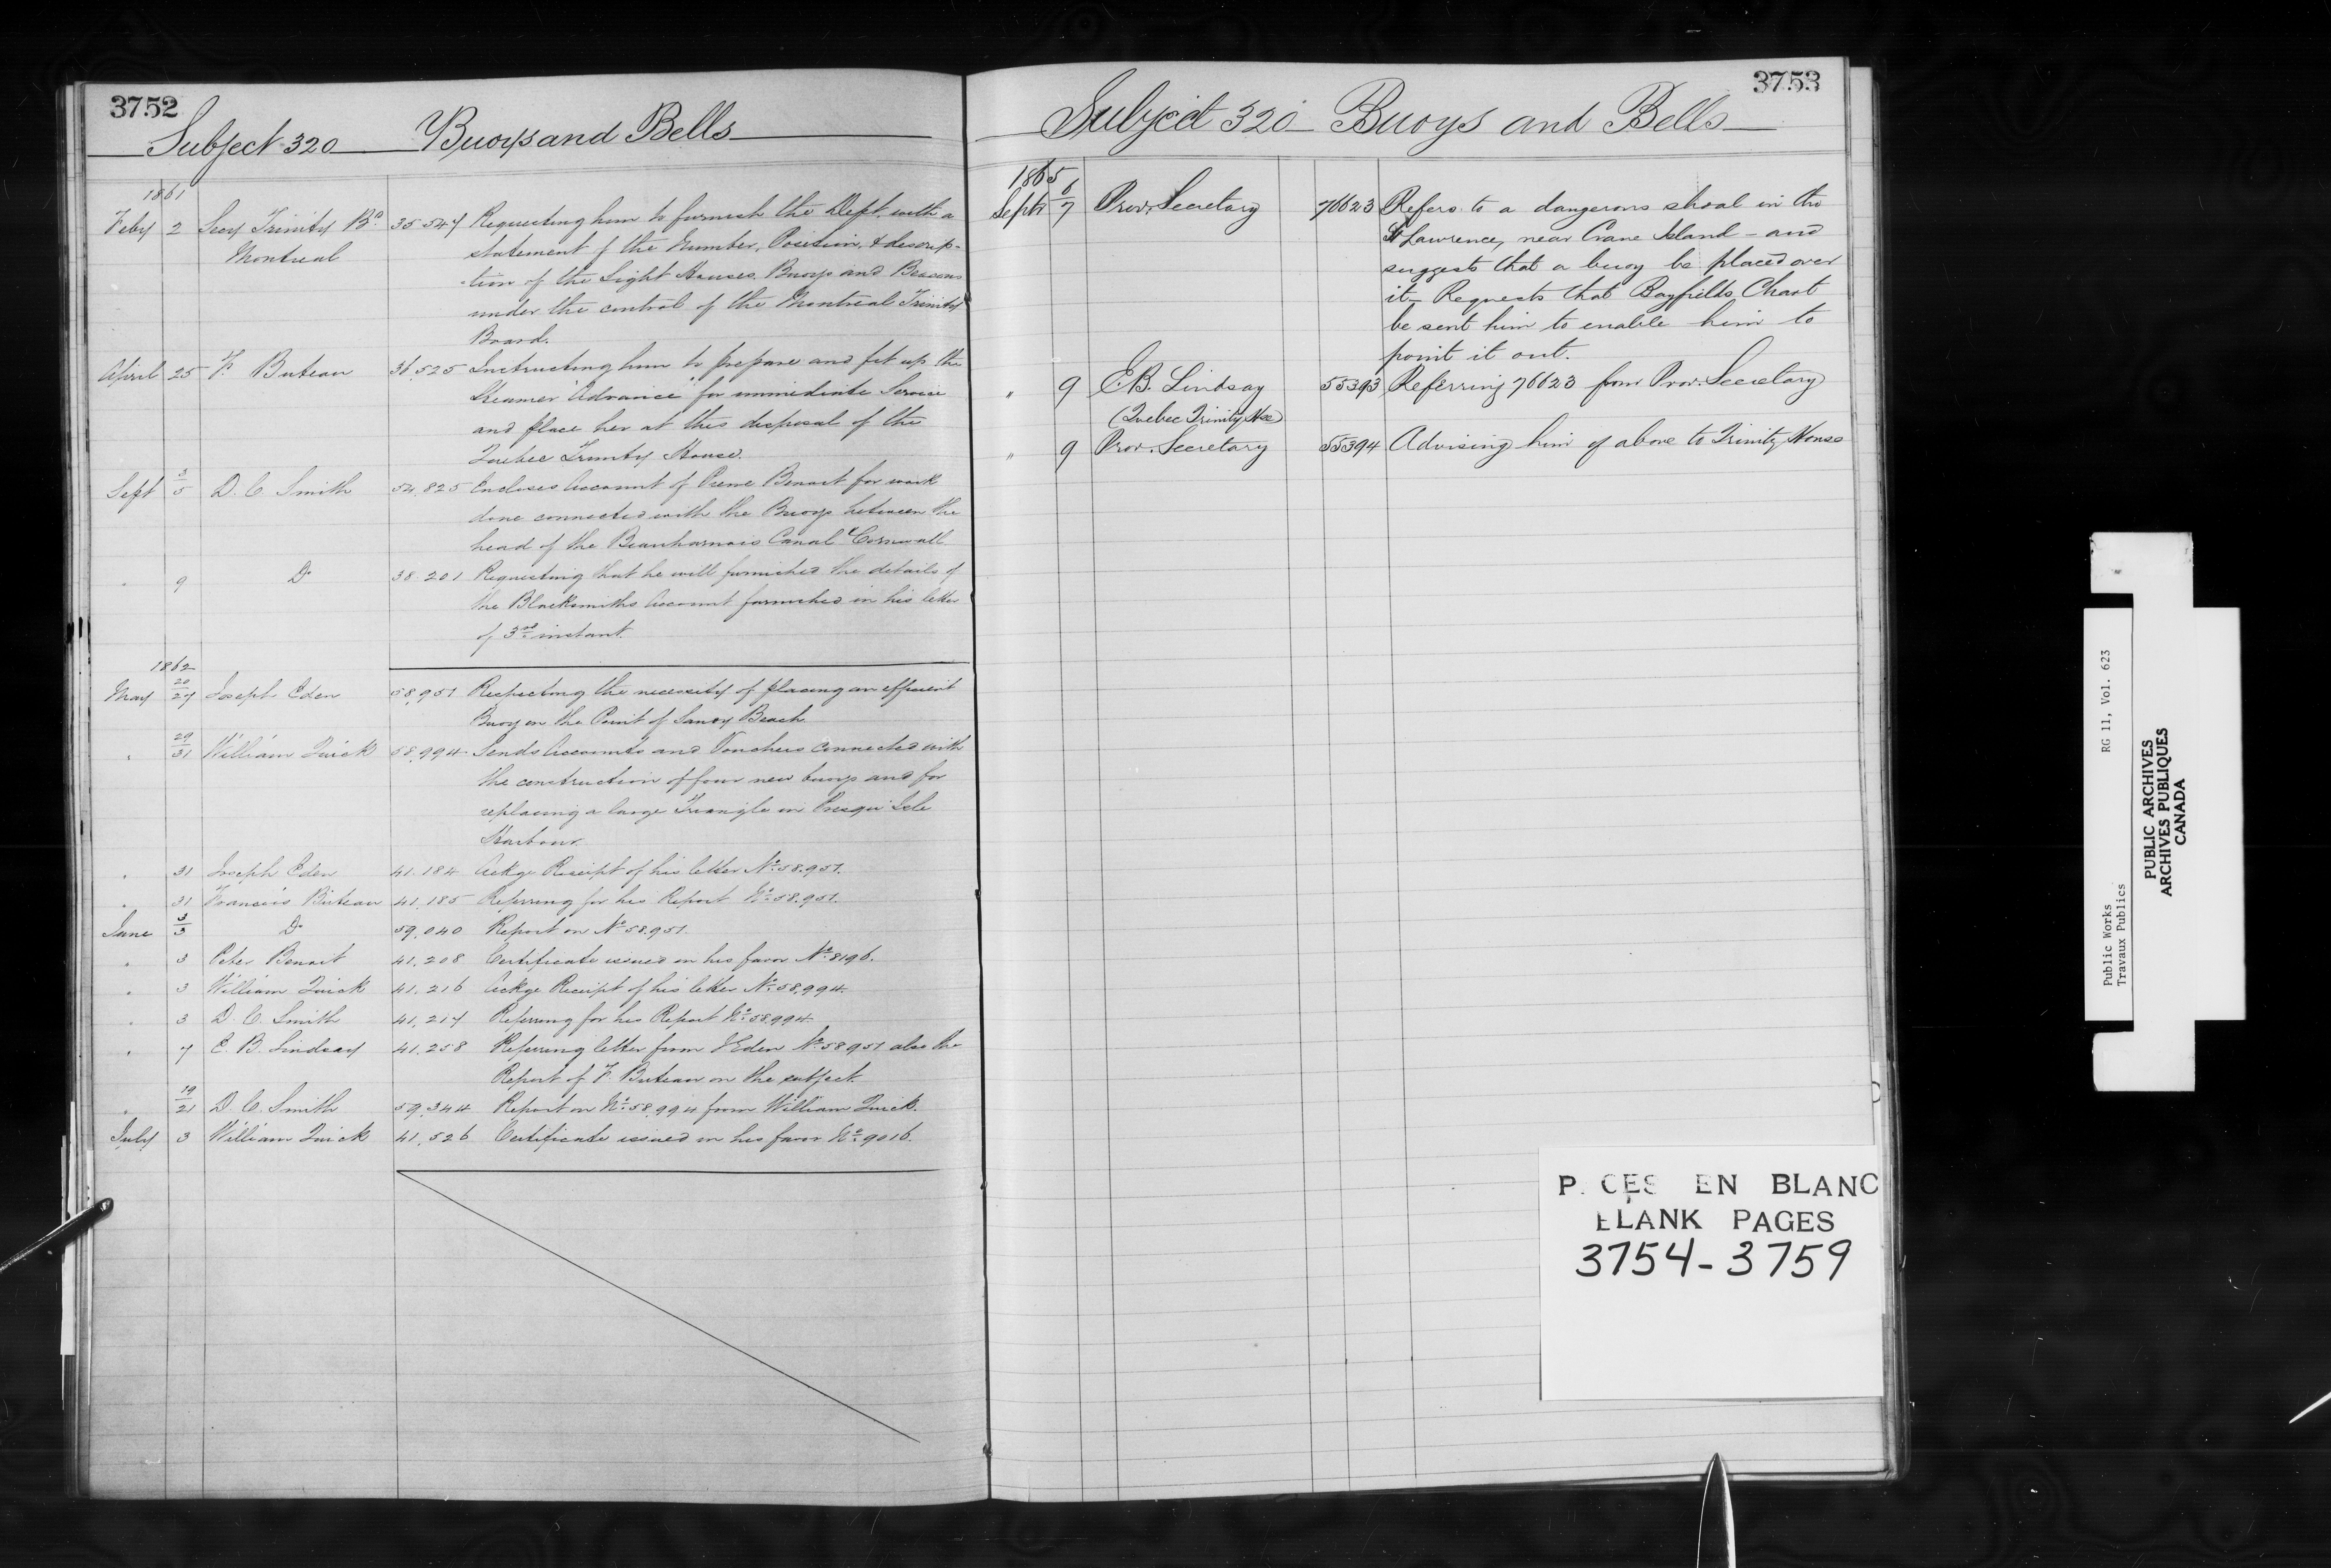 3752
Subject 320 Buoys and Bells
1861
Feby 2 Secy Trinity Bd 35.547 Requesting him to furnish the Dept. with a
Montreal statement of the Number, Position, & descrip-
-tion of the Light Houses, Buoys and Beacons
under the control of the Montreal Trinity
Board.
April 25 F. Buteau 36,525 Instructing him to prepare and fit up the
Steamer "Advance" for immediate Service
and place her at the disposal of the
Quebec Trinity House.
Sept 3/5 D. C. Smith 54,825 Encloses Account of Pierre Benoit for work
done connected with the Buoys between the
head of the Beauharnois Canal & Cornwall
" 9 Do 38.201 Requesting that he will furnished the details of
the Blacksmiths Account furnished in his letter
of 3rd instant.
1862
May 20/27 Joseph Eden 58,951 Respecting the necessity of placing an efficient
Buoy on the Point of Sandy Beach
" 29/31 William Quick 58,994 Sends Accounts and Vouchers connected with
the construction of four new buoys and for
replacing a large Triangle in Presqu'Isle
Harbour.
" 31 Joseph Eden 41.184 Ackge Receipt of his letter No 58.951.
" 31 Francois Buteau 41,185 Referring for his Report No 58.951.
June 3/3 Do 59,040 Report on No 58.951.
" 3 Peter Benoit 41,208 Certificate issued in his favor No 8196.
" 3 William Quick 41,216 Ackge Receipt of his letter No 58,994.
" 3 D. C. Smith 41,217 Referring for his Report No 58.994
" 7 E. B. Lindsay 41,258 Referring letter from J Eden No 58951 also the
Report of F. Buteau on the subject.
" 19/21 D. C. Smith 59,344 Report on No 58,994 from William Quick.
July 3 William Quick 41,526 Certificate issued in his favor No 9016.
3753
Subject 320 Buoys and Bells
1865
Septr 6/7 Prov. Secretary 76623 Refers to a dangerous shoal in the
St Lawrence, near Crane Island - and
suggests that a buoy be placed over
it - Requests that Bayfields Chart
be sent him to enable him to
point it out.
" 9 E.B. Lindsay 55393 Referring 76623 from Prov. Secretary
(Quebec Trinity Hse)
" 9 Prov. Secretary 55394 Advising him of above to Trinity House
P CES EN BLANC
BLANK PAGES
3754-3759
Public Works RG 11, Vol. 623
Travaux Publics
PUBLIC ARCHIVES
ARCHIVES PUBLIQUES
CANADA